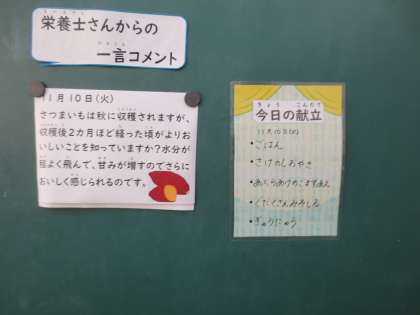 栄養士さんからの
一言コメント
11月10日(火)
さつまいもは秋に収穫されますが、
収穫後2カ月ほど経った頃がよりお
いしいことを知っていますか？水分が
程よく飛んで、甘みが増すのでさらに
おいしく感じられるのです。
きょう こんだて
今日の献立
11月10日(火)
・ごはん
・さけのしおやき
・あぶらあげのごまずあえ
・くだくさんみそしる
・ぎゅうにゅう